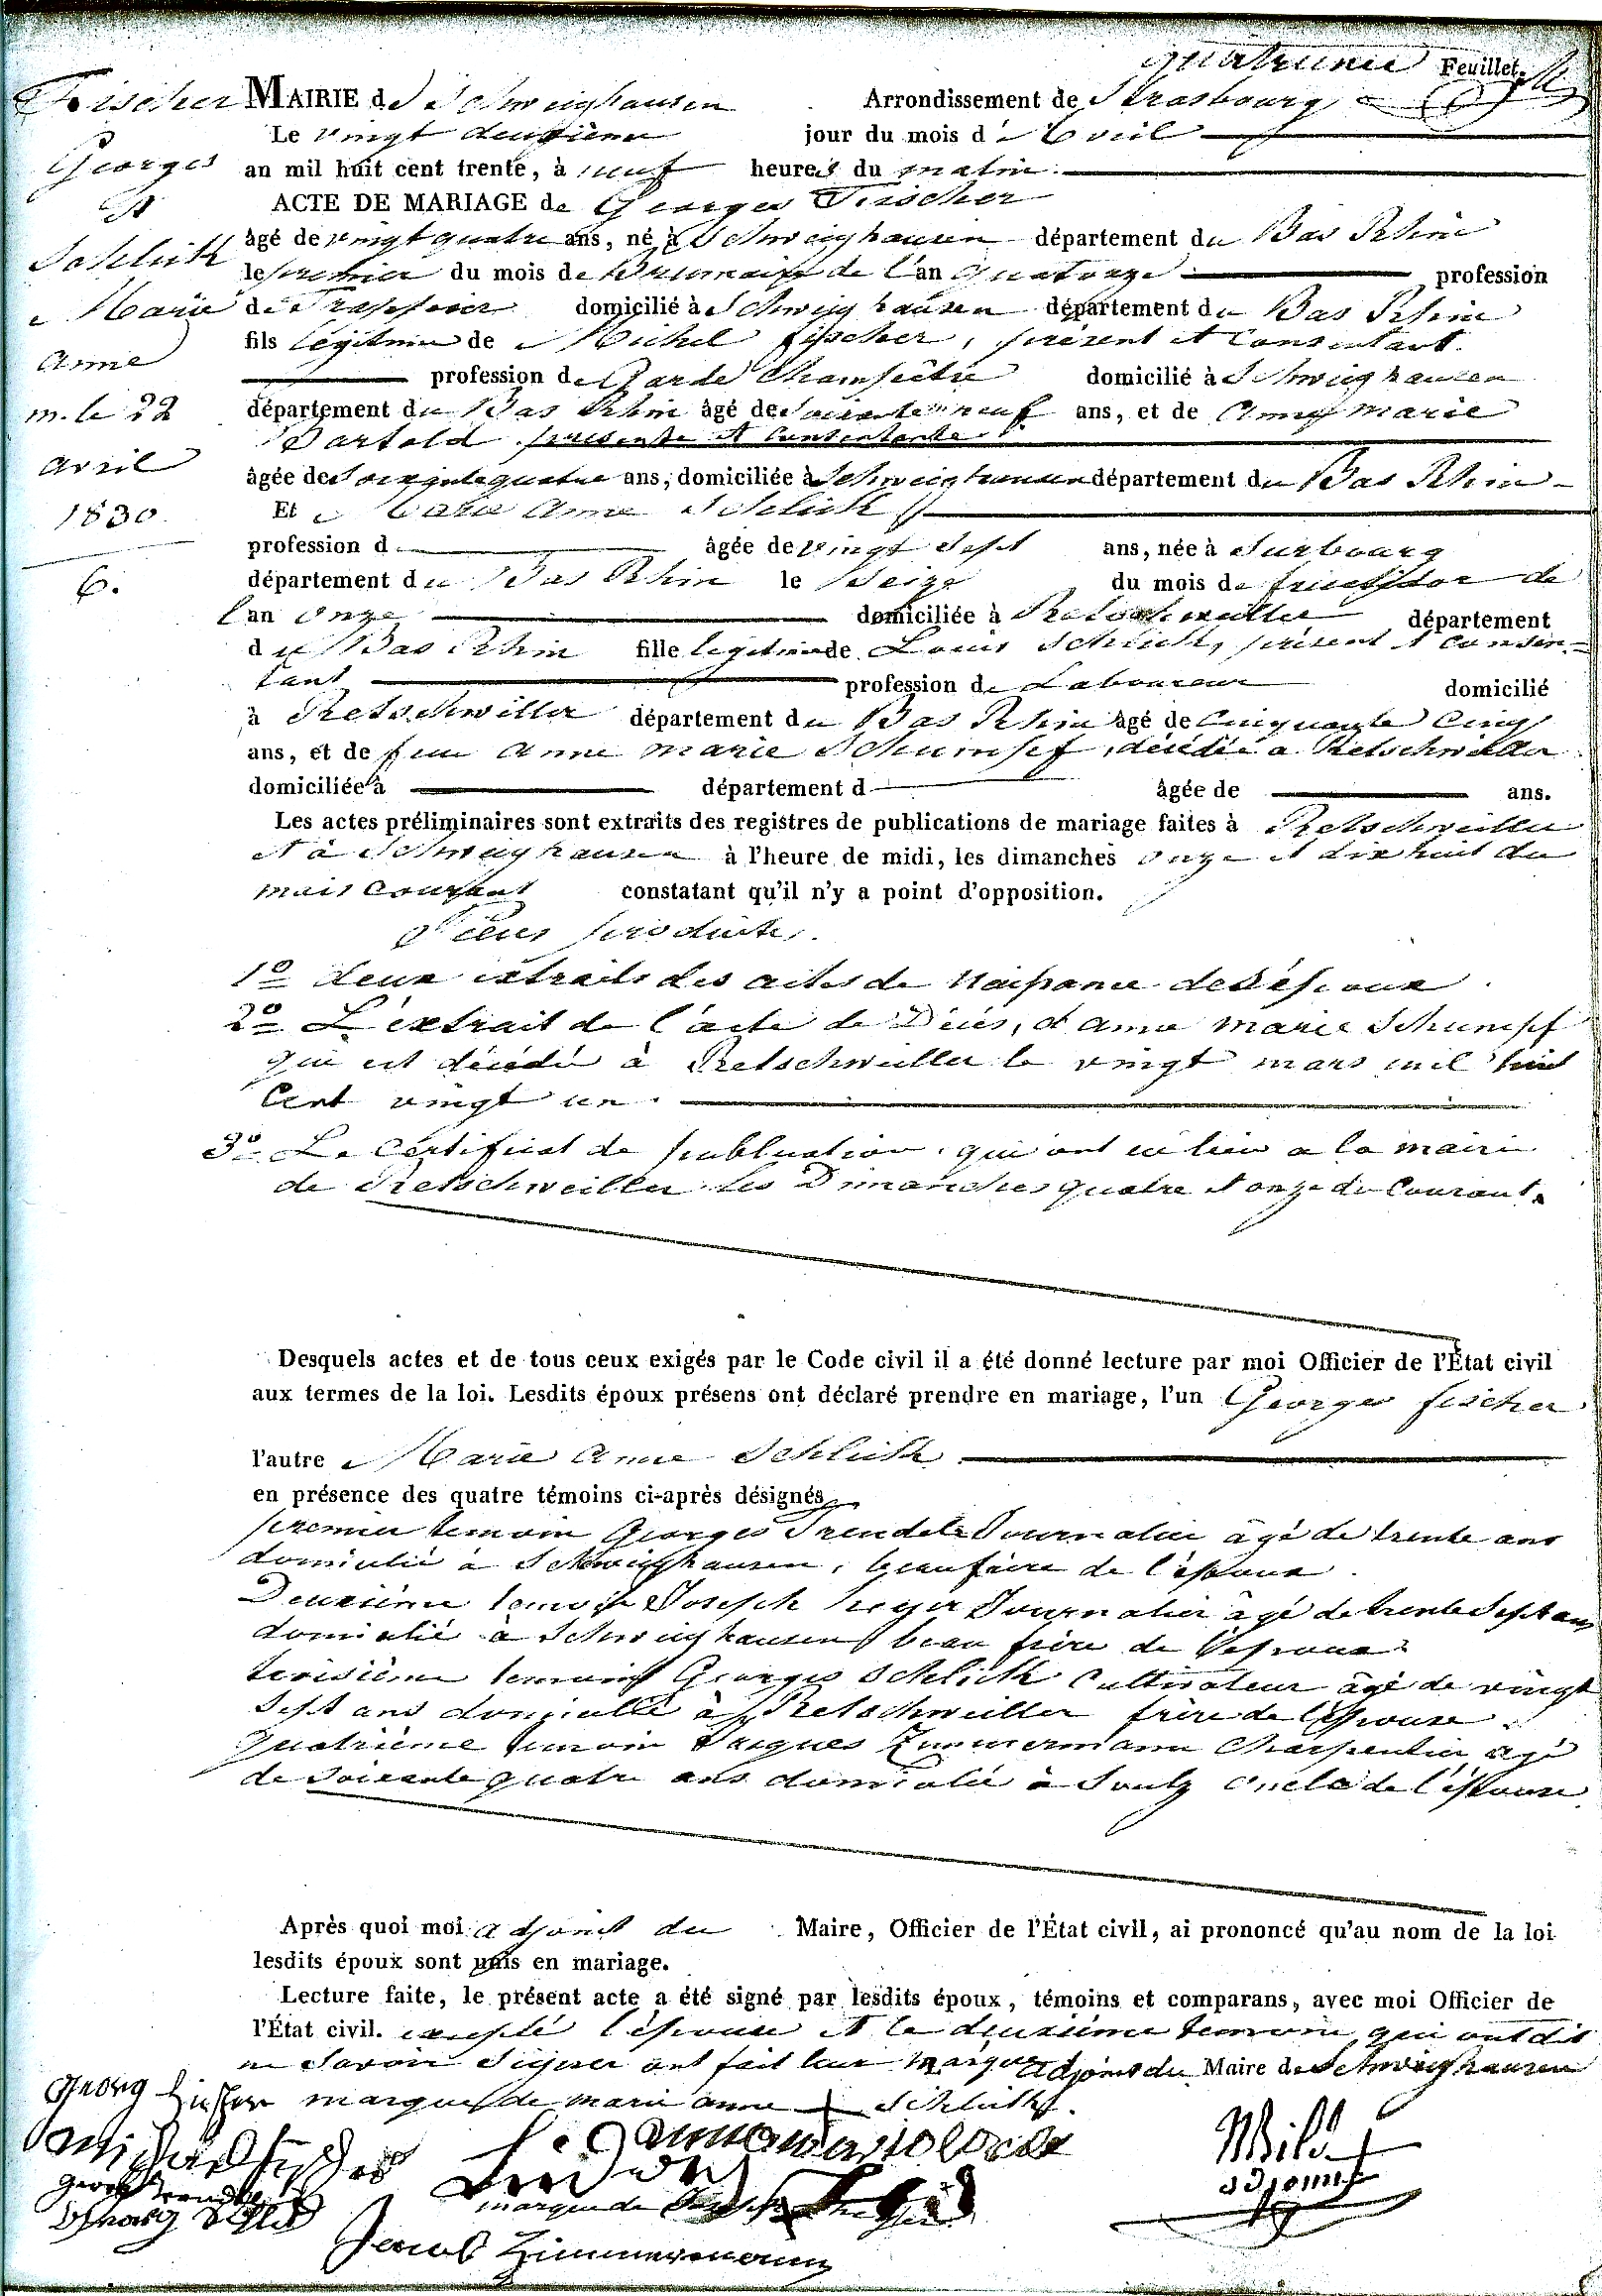 quatrieme Feuillet.
Fischer
Georges
et
Schlick
Marie
Anne
m. le 22
avril
1830.
6.
MAIRIE de Schweighausen Arrondissement de Strasbourg
Le vingt deuxieme jour du mois d'Avril
an mil huit cent trente, à neuf heures du matin.
ACTE DE MARIAGE de Georges Fischer
âgé de vingt quatre ans, né à Schweighausen département du Bas Rhin
le premier du mois de Brumaire de l'an quatorze profession
de domicilié à Schweighausen département du Bas Rhin
fils légitime de Michel fischer, présent et consentant
profession de Garde Champêtre domicilié à Schweighausen
département du Bas Rhin âgé de soixante neuf ans, et de Anne marie
Bartold présente et consentante
âgée de soixante quatre ans, domiciliée à Schweighausen département du Bas Rhin
Et Marie Anne Schlick
profession d âgée de vingt sept ans, née à Surbourg
département du Bas Rhin le seize du mois de fructidor de
l'an onze domiciliée à Retschwiller département
du Bas Rhin fille légitime de Louis Schlick, présent et consen-
tant profession de Laboureur domicilié
à Retschwiller département du Bas Rhin âgé de cinquante cinq
ans, et de feue Anne marie Schumpf, décédée à Retschwiller
domiciliée à département d âgée de ans.
Les actes préliminaires sont extraits des registres de publications de mariage faites à Retschwiller
et à Schweighausen à l'heure de midi, les dimanches onze et dix huit du
mois courant constatant qu'il n'y a point d'opposition.
Pieces produites.
1º deux extraits des actes de Naissance des époux.
2º L'extrait de l'acte de Décès, d'anne marie Schumpf
qui est décédé à Retschweiller le vingt mars mil huit
Cent vingt un.
3º Le certificat de publication, qui ont eu lieu a la mairie
de Retschweiller les Dimanches quatre et onze du Courant.
Desquels actes et de tous ceux exigés par le Code civil il a été donné lecture par moi Officier de l'État civil
aux termes de la loi. Lesdits époux présens ont déclaré prendre en mariage, l'un Georges fischer
l'autre Marie Anne Schlick
en présence des quatre témoins ci-après désignés
premier temoin Georges Trendel Journalier âgé de trente ans
domicilié à Schweighausen, beau frère de l'époux.
Deuxième temoin Joseph Journalier âgé de trente sept ans
domicilié à Schweighausen beau frère de l'époux
troisième temoin Georges Schlick Cultivateur âgé de vingt
Sept ans domicilié à Retschweiller frère de l'épouse.
Quatrième temoin Jacques Zimmermann Charpentier âgé
de soixante quatre ans domicilié à Soultz oncle de l'épouse.
Après quoi moi adjoint du Maire, Officier de l'État civil, ai prononcé qu'au nom de la loi
lesdits époux sont unis en mariage.
Lecture faite, le présent acte a été signé par lesdits époux, témoins et comparans, avec moi Officier de
l'État civil. excepté l'épouse et le deuxième temoin, qui ont dit
ne savoir signer ont fait leur marque adjoint du Maire de Schweighausen
Georg Fischer marque de marie anne + Schlick.
Michael Fischer
Georg Trendel
marque de Joseph
Georg Schlick
Jacob Zimmermann
Wild
adjoint